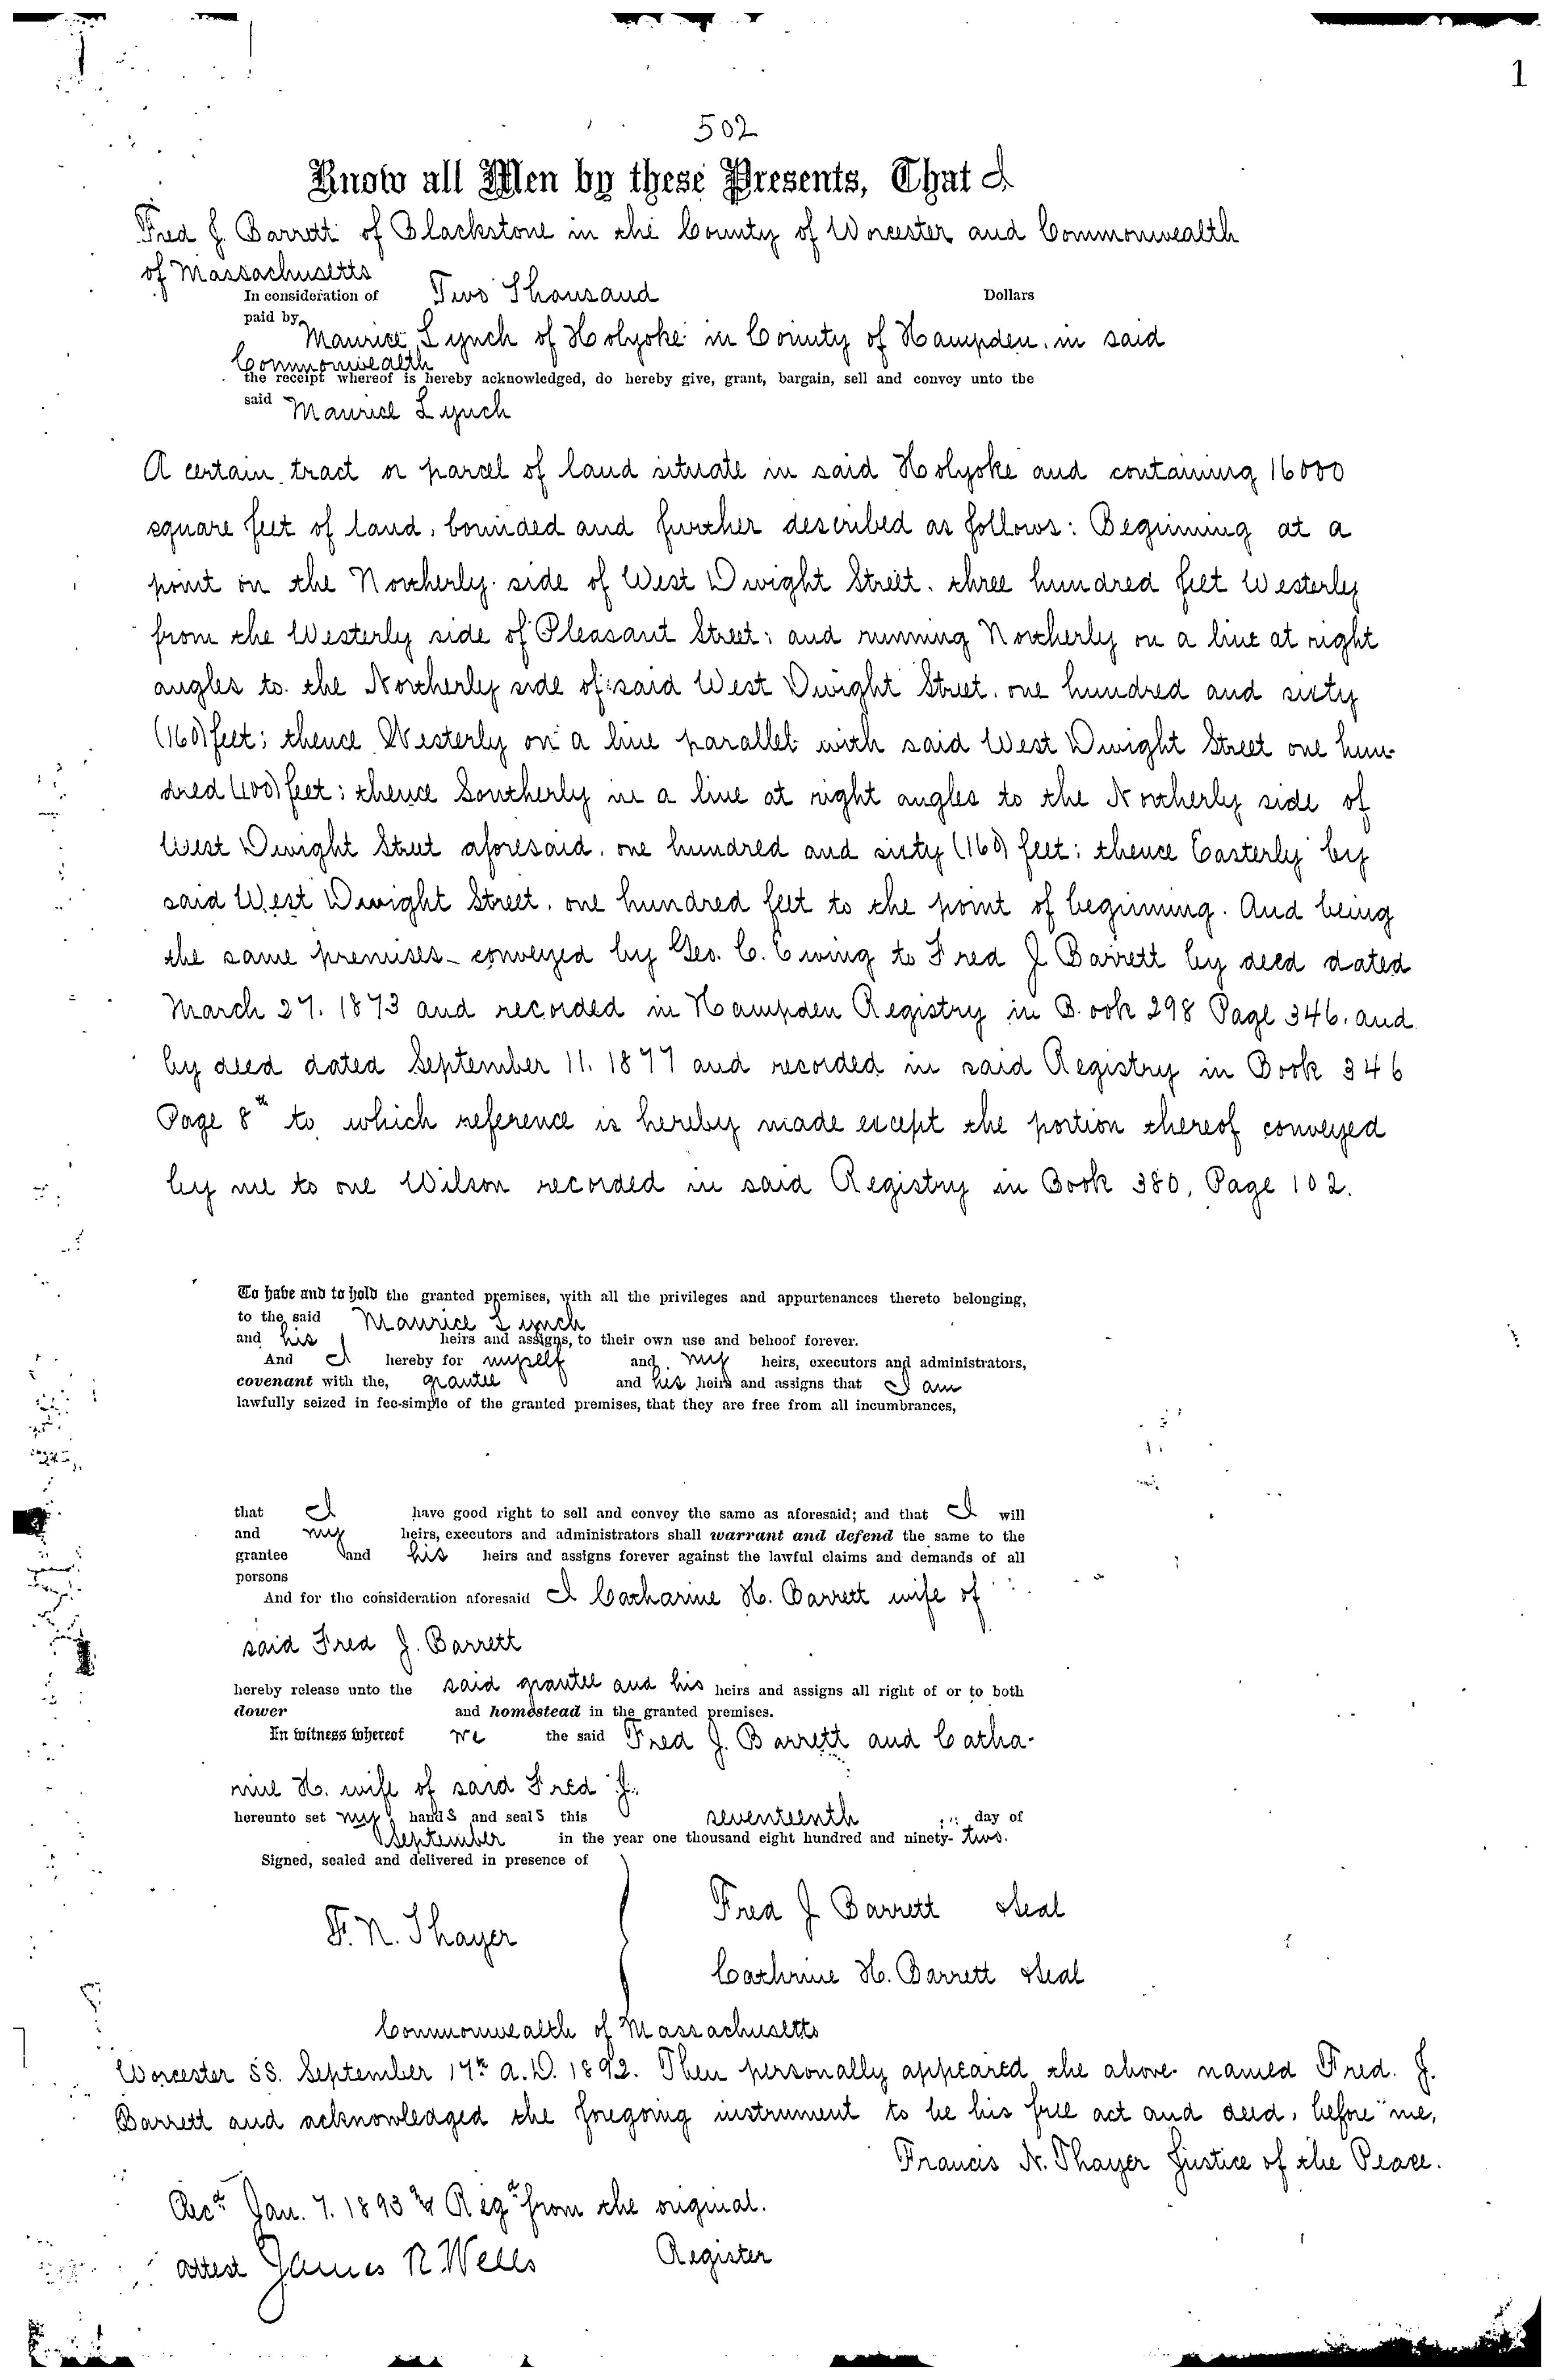 1
502
Know all Men by these Presents, That I
Fred J. Barrett of Blackstone in the County of Worcester and Commonwealth
of Massachusetts
In consideration of Two Thousand Dollars
paid by
Maurice Lynch of Holyoke in County of Hampden, in said
Commonwealth
the receipt whereof is hereby acknowledged, do hereby give, grant, bargain, sell and convey unto the
said Maurice Lynch
A certain tract or parcel of land situate in said Holyoke and containing 16000
square feet of land, bounded and further described as follows: Beginning at a
point on the Northerly side of West Dwight Street, three hundred feet Westerly
from the Westerly side of Pleasant Street; and running Northerly on a line at right
angles to the Northerly side of said West Dwight Street, one hundred and sixty
(160) feet; thence Westerly on a line parallel with said West Dwight Street one hun-
dred (100) feet; thence Southerly in a line at right angles to the Northerly side of
West Dwight Street aforesaid, one hundred and sixty (160) feet; thence Easterly by
said West Dwight Street, one hundred feet to the point of beginning. And being
the same premises conveyed by Geo. C. Ewing to Fred J Barrett by deed dated
March 27. 1873 and recorded in Hampden Registry in Book 298 Page 346, and
by deed dated September 11. 1877 and recorded in said Registry in Book 346
Page 8th to which reference is hereby made except the portion thereof conveyed
by me to one Wilson recorded in said Registry in Book 380, Page 102.
To have and to hold the granted premises, with all the privileges and appurtenances thereto belonging,
to the said Maurice Lynch
and his heirs and assigns, to their own use and behoof forever.
And I hereby for myself and my heirs, executors and administrators,
covenant with the, grantee and his heirs and assigns that I am
lawfully seized in fee-simple of the granted premises, that they are free from all incumbrances,
that I have good right to sell and convey the same as aforesaid; and that I will
and my heirs, executors and administrators shall warrant and defend the same to the
grantee and his heirs and assigns forever against the lawful claims and demands of all
persons
And for the consideration aforesaid I Catharine H. Barrett wife of
said Fred J. Barrett
hereby release unto the said grantee and his heirs and assigns all right of or to both
dower and homestead in the granted premises.
In witness whereof we the said Fred J. Barrett and Catha-
rine H. wife of said Fred J.
hereunto set my hands and seals this seventeenth day of
September in the year one thousand eight hundred and ninety-two.
Signed, sealed and delivered in presence of
Fred J Barrett Seal
F. N. Thayer
Cathrine H. Barrett Seal
Commonwealth of Massachusetts
Worcester SS. September 17th A.D. 1892. Then personally appeared the above named Fred. J.
Barrett and acknowledged the foregoing instrument to be his free act and deed, before me,
Francis N. Thayer Justice of the Peace.
Recd Jan. 7. 1893 & Regd from the original.
attest James R. Wells Register